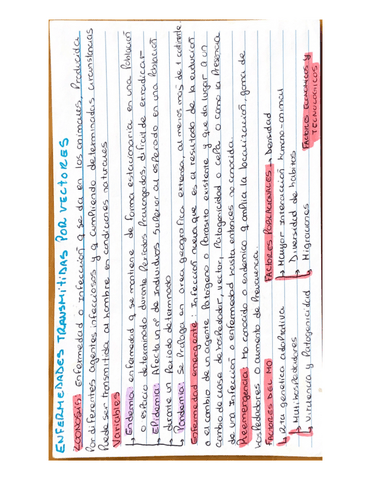 ENFERMEDADES TRANSMITIDAS POR VECTORES
ZOONOSIS: Enfermedad o infección q se da en los animales. Producidas
por diferentes agentes infecciosos y q cumpliendo determinadas circunstancias
Puede ser transmitida al hombre en condiciones naturales
Variables
Endemia: enfermedad q se mantiene de forma estacionaria en una población
o espacio determinado durante periodos prolongados, difícil de erradicar
Epidemia: Afecta un nº de individuos superior al esperado en una población
durante un periodo determinado
Pandemia: se propaga en area geografica extensa, al menos mas de 1 continente
Enfermedad emergente: Infección nueva que es el resultado de la evolución
o el cambio de un agente patógeno o parásito existente y que da lugar a un
cambio de clase de hospedador, vector, patogenicidad o cepa o como la presencia
de una infección o enfermedad hasta entonces no conocida.
Reemergencia: Mo conocido o endemico q amplia la localización, gama de
hospedadores o aumento de prevalencia.
FACTORES DEL MO
Alta genética adaptativa
Multihospedadores
Virulencia y Patogenicidad
FACTORES POBLACIONALES
Densidad
Mayor interacción humano-animal
Diversidad de hábitos
Migraciones
FACTORES CLIMATICOS Y
TECNOLOGICOS